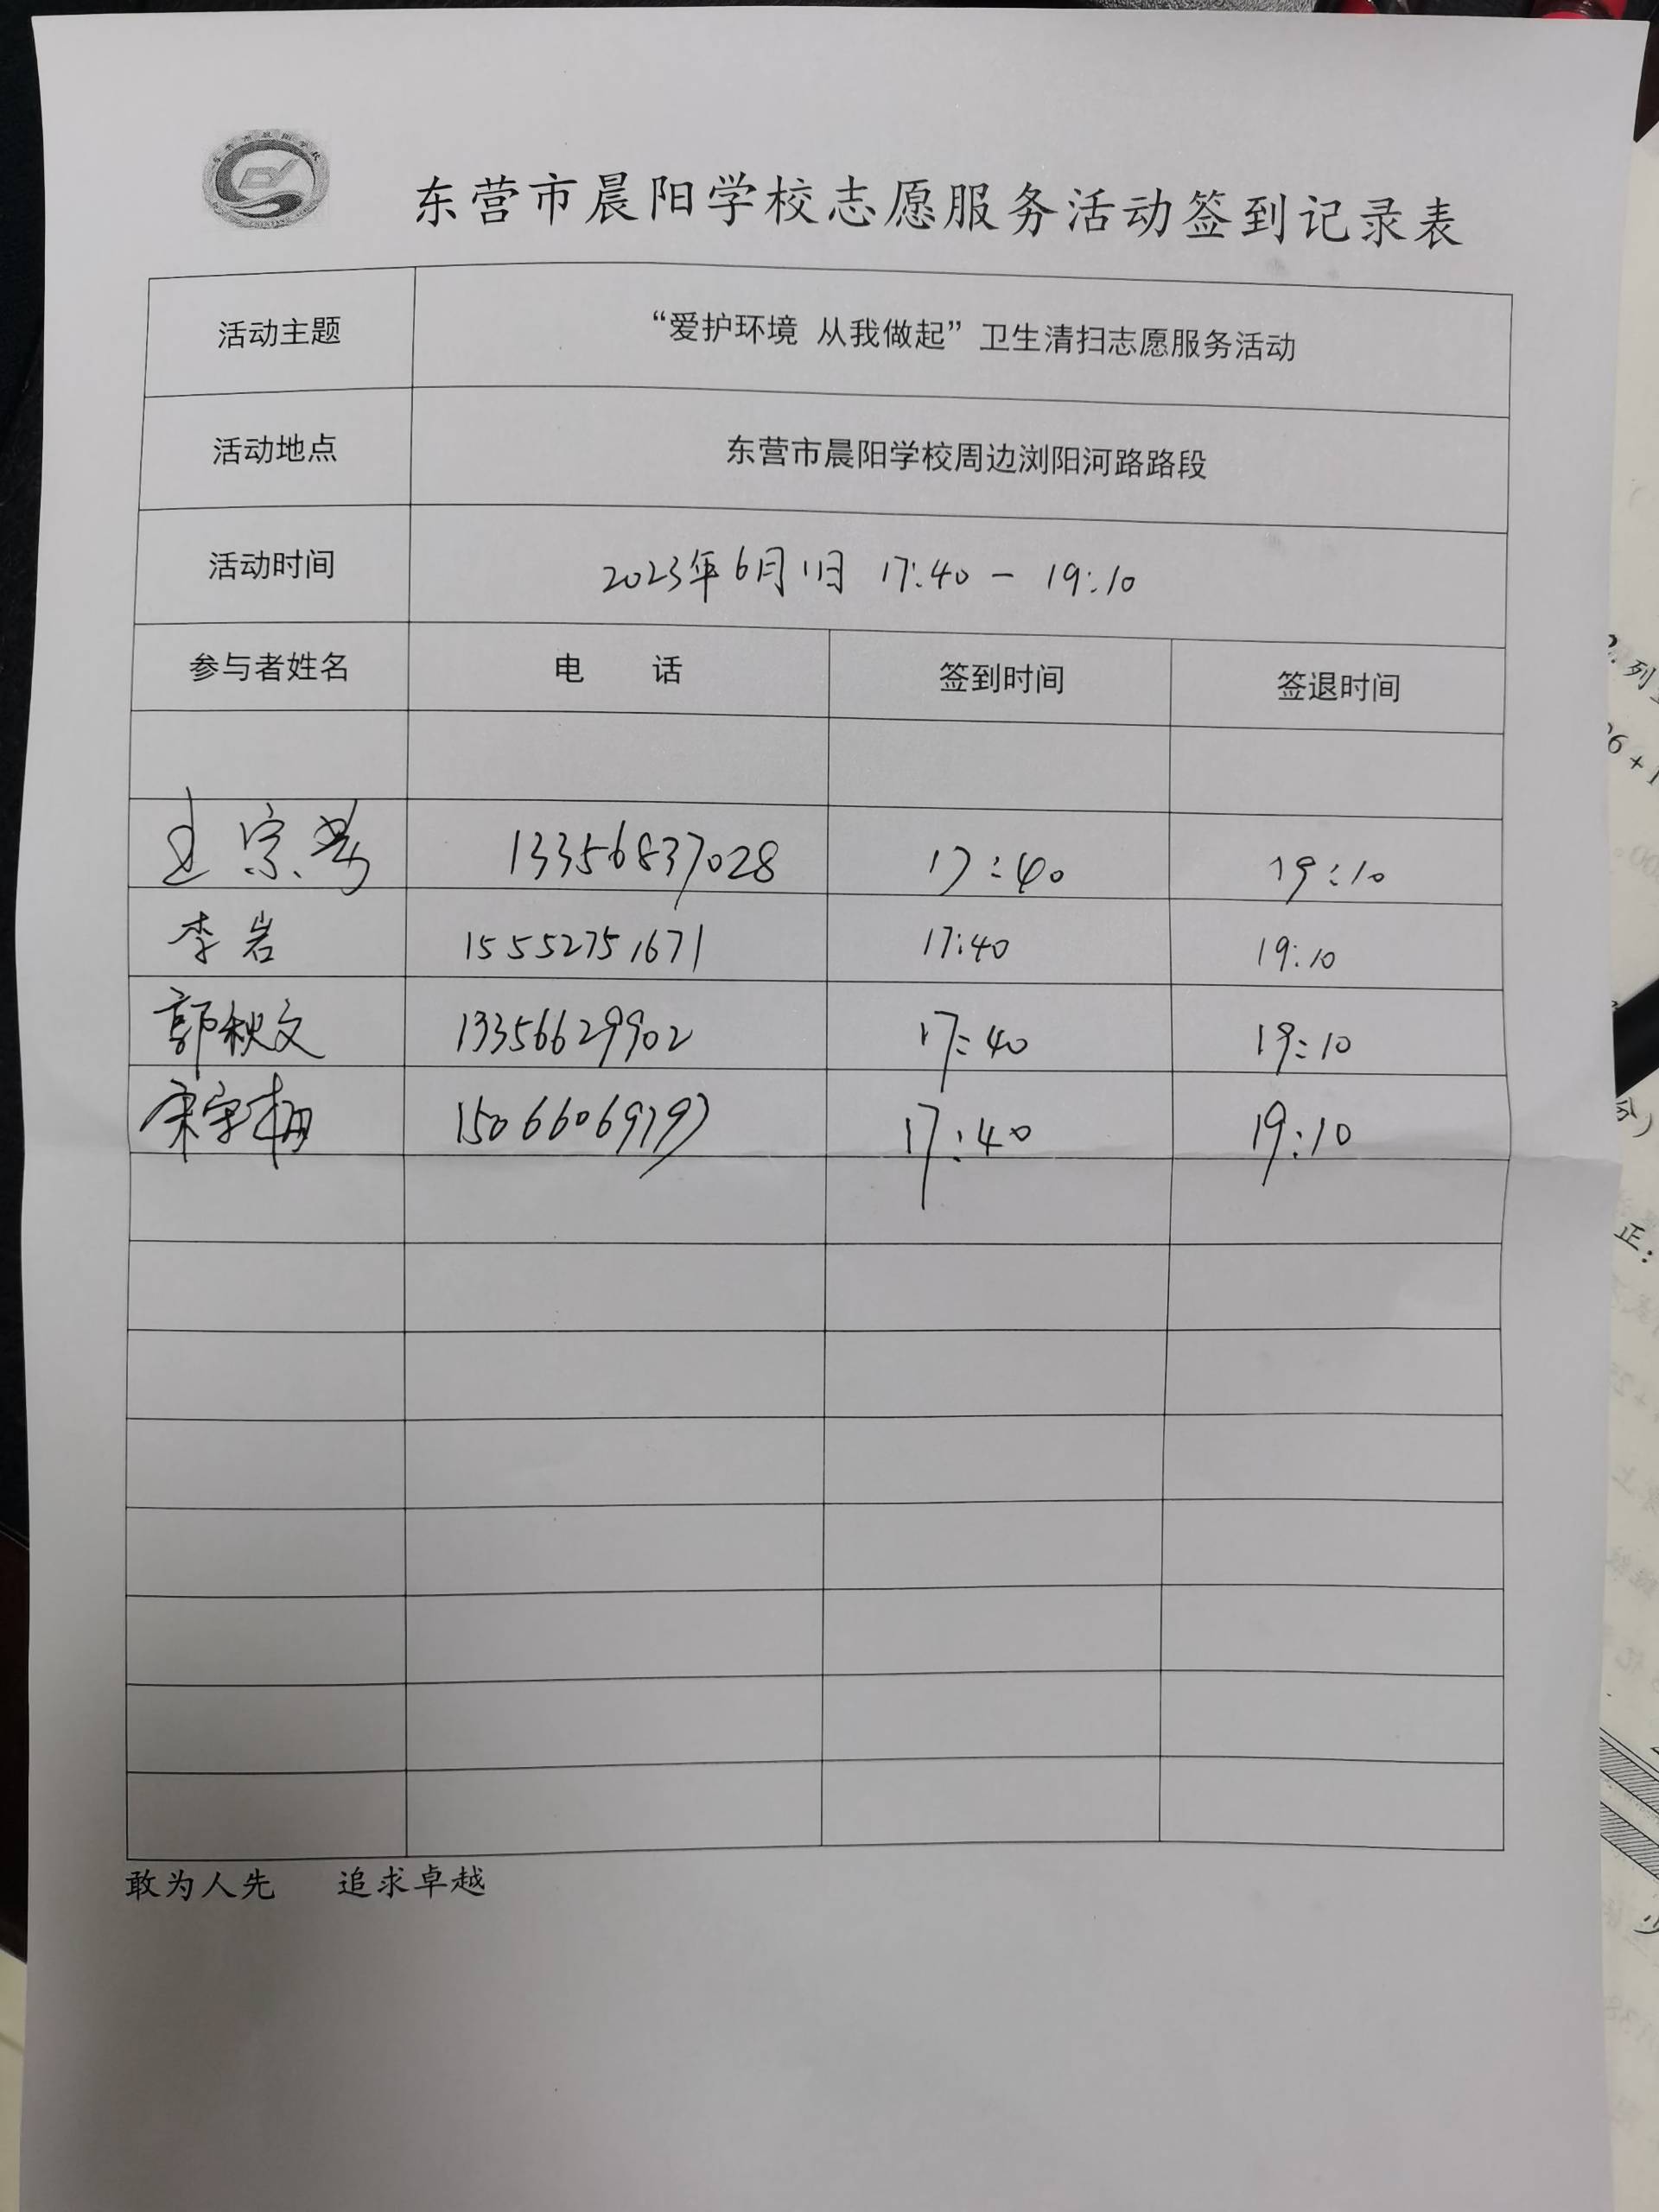 东营市晨阳学校志愿服务活动签到记录表
活动主题 “爱护环境 从我做起”卫生清扫志愿服务活动
活动地点 东营市晨阳学校周边浏阳河路路段
活动时间 2023年6月1日 17:40 — 19:10
参与者姓名 电 话 签到时间 签退时间
王宗 13356837028 17:40 19:10
李岩 15552751671 17:40 19:10
郭秋文 13356629902 17:40 19:10
17:40 19:10
敢为人先 追求卓越